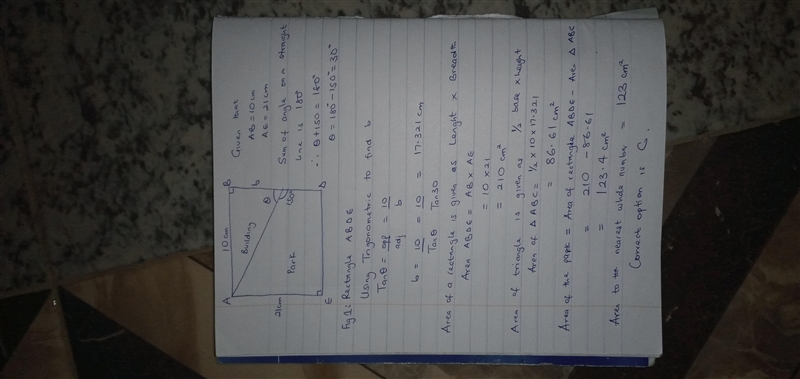 Given that
AB = 10cm
AE = 21cm
Sum of angle on a straight
line is 180°
∴ θ + 150 = 180°
θ = 180° - 150° = 30°
A
10cm
B
b
Building
θ
150°
Park
21cm
E
D
Fig 1: Rectangle ABDE
Using Trigonometric to find b
Tanθ = opp/adj = 10/b
b = 10/Tanθ = 10/Tan30 = 17.321cm
Area of a rectangle is given as Lenght x Breadth
Area ABDE = AB x AE
= 10 x 21
= 210 cm²
Area of triangle is given as ½ base x height
Area of Δ ABC = ½ x 10 x 17.321
= 86.61 cm²
Area of the park = Area of rectangle ABDE - Area Δ ABC
= 210 - 86.61
= 123.4 cm²
Area to the nearest whole number = 123 cm²
Correct option is C.